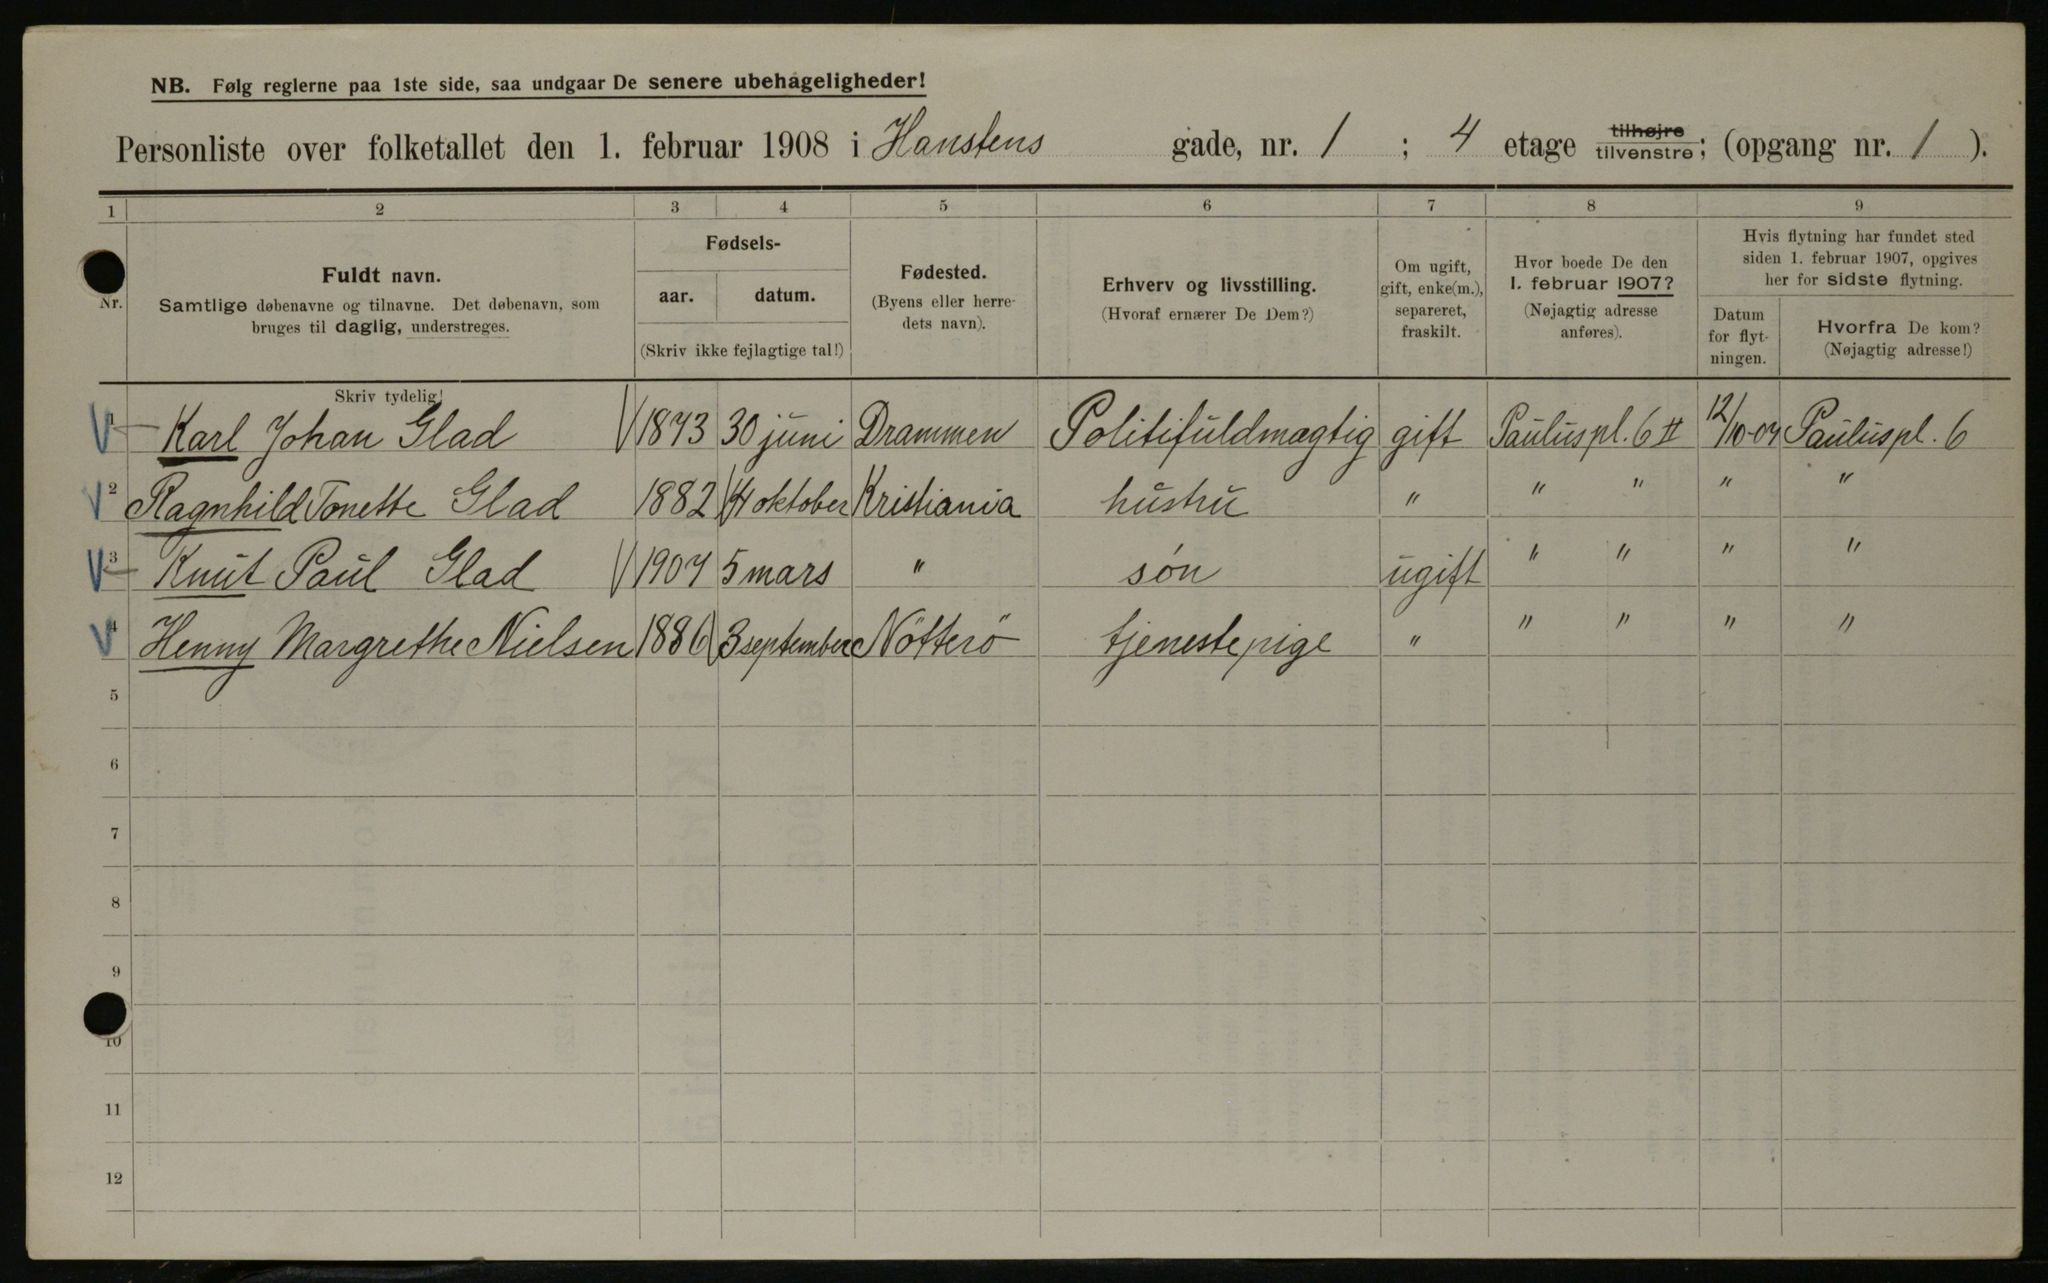 NB. Følg reglerne paa 1ste side, saa undgaar De senere ubehageligheder!
Personliste over folketallet den 1. februar 1908 i Hanstens gade, nr. 1 ; 4 etage tilhøjre tilvenstre; (opgang nr. 1 ).
1 2 3 4 5 6 7 8 9
Nr.
Fuldt navn.
Samtlige døbenavne og tilnavne. Det døbenavn, som
bruges til daglig, understreges.
Fødsels-
aar. datum.
(Skriv ikke fejlagtige tal!)
Fødested.
(Byens eller herre-
dets navn).
Erhverv og livsstilling.
(Hvoraf ernærer De Dem?)
Om ugift,
gift, enke(m.),
separeret,
fraskilt.
Hvor boede De den
1. februar 1907?
(Nøjagtig adresse
anføres).
Hvis flytning har fundet sted
siden 1. februar 1907, opgives
her for sidste flytning.
Datum
for flyt-
ningen.
Hvorfra De kom?
(Nøjagtig adresse!)
Skriv tydelig!
1 Karl Johan Glad 1873 30 juni Drammen Politifuldmægtig gift Pauluspl. 6 II 12/10-07 Pauluspl. 6
2 Ragnhild Tonette Glad 1882 14 oktober Kristiania hustru " " " " "
3 Knut Paul Glad 1907 5 mars " søn ugift " " " "
4 Henny Margrethe Nielsen 1886 3 september Nötterö tjenestepige " " " " "
5
6
7
8
9
10
11
12